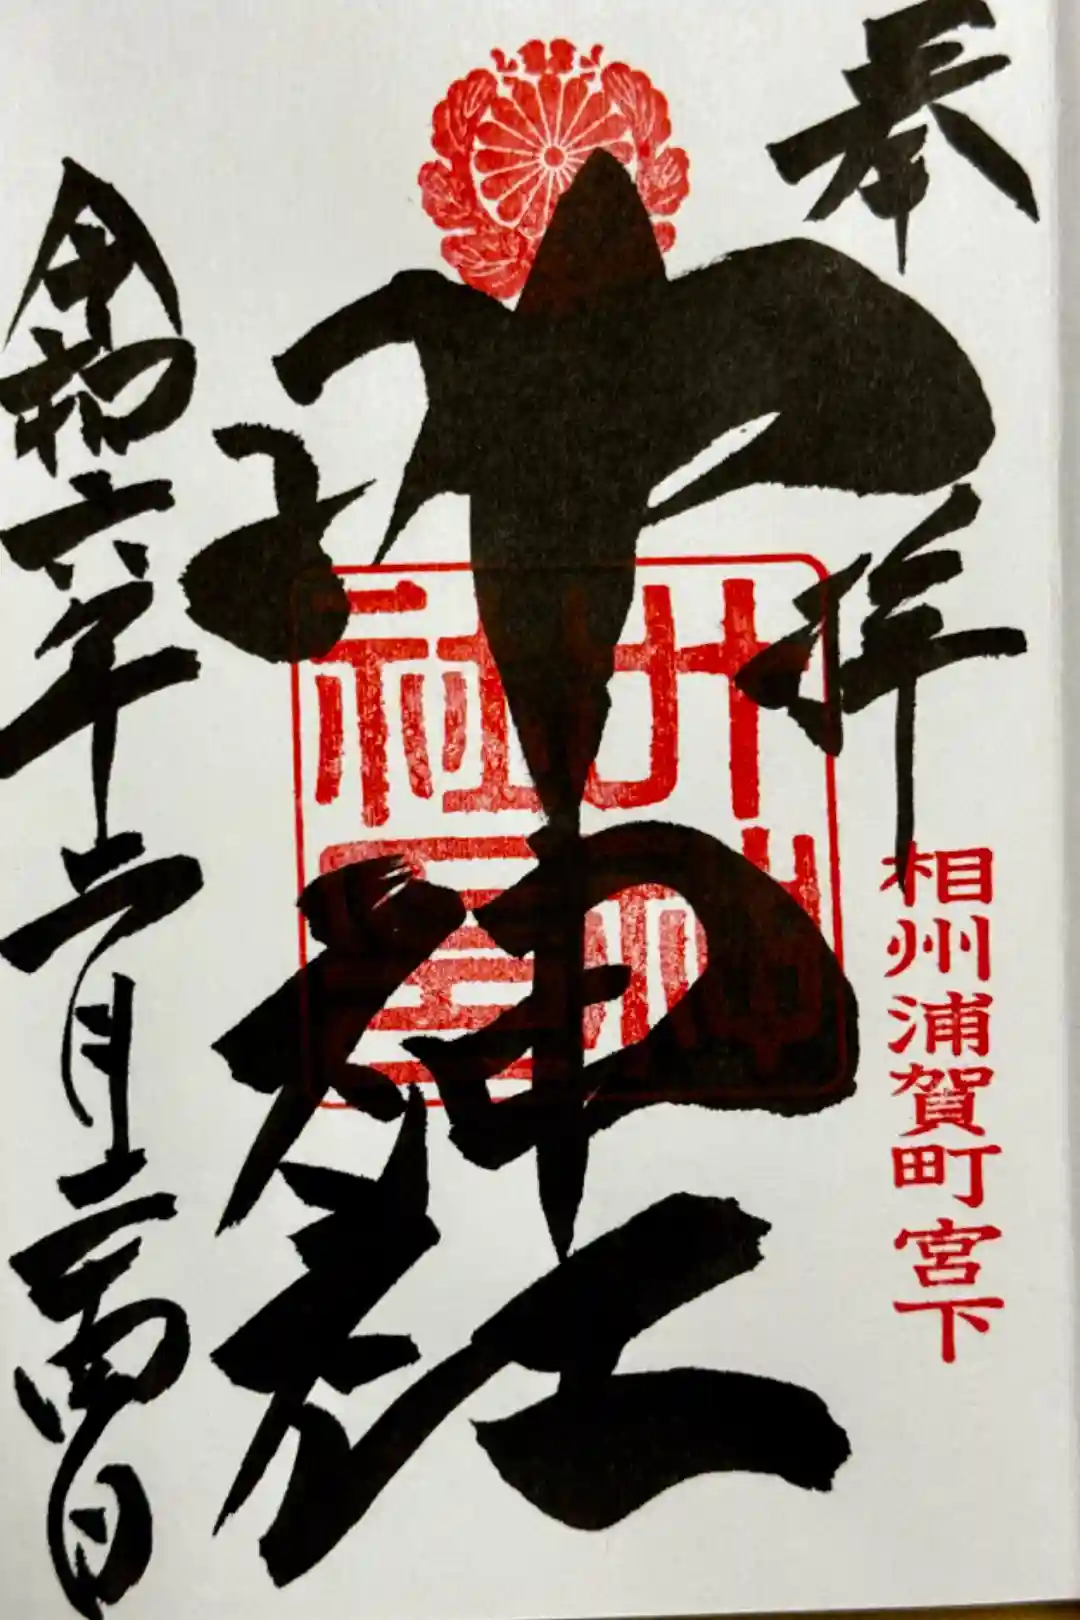 奉拝
相州浦賀町宮下
叶神社
令和六年二月二十四日